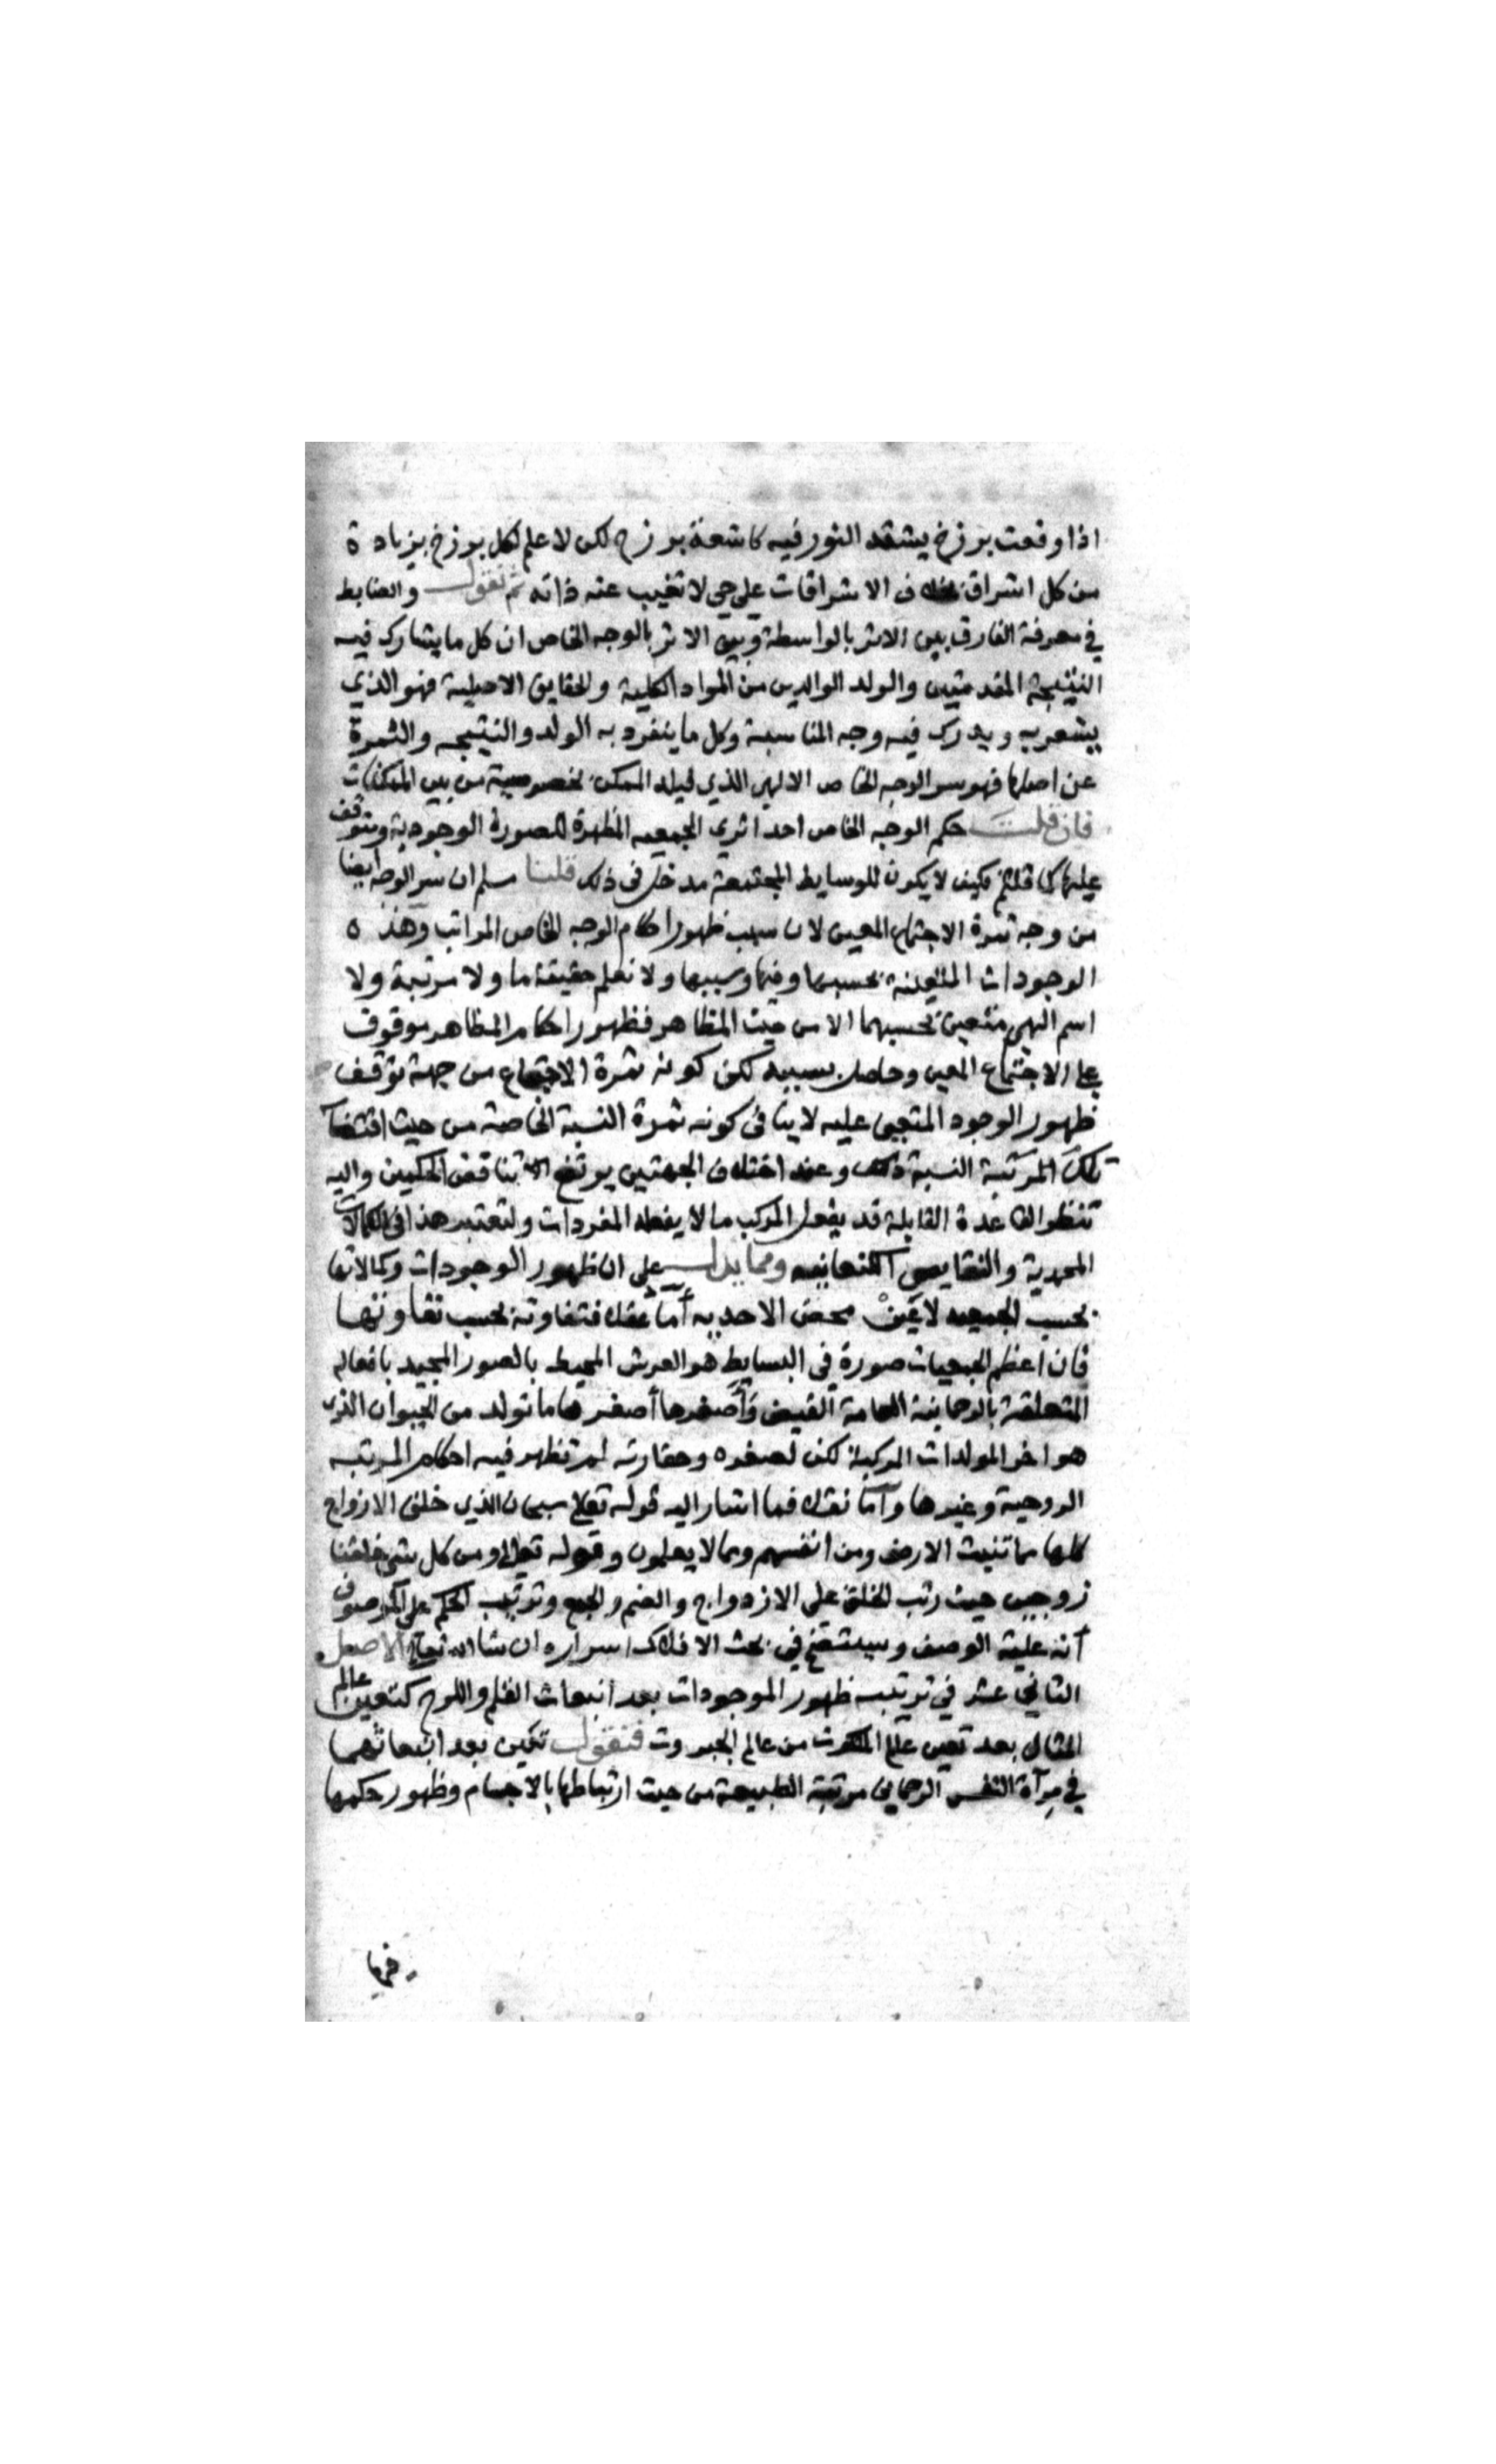 اذا وقعت برزخ يشتد النور فيه كاشعة برزح لكن لا علم لكل برزخ بزيادة
من كل اشراق بخلاف الاشراقات على حي لا تغيب عنه ذاته ثم تقول والضابط
في معرفة الفارق بين الاثر بالواسطة وبين الاثر بالوجه الخاص ان كل ما يشارك فيه
النتيجة المقدمتين والولد الوالدين من المواد الكلية والحقايق الاصلية فهو الذي
يشعر به ويدرك فيه وجه المناسبة وكل ما ينفرد به الولد والنتيجه والثمرة
عن اصلها فهو سر الوجه الخاص الالهي الذي لهذا الممكن بخصوصيته من بين الممكنات
فان قلت حكم الوجه الخاص احد اثري الجمعيه المظهرة للصورة الوجودية ويتوقف
عليها كما قلتم فكيف لا يكون للوسايط المجتمعة مدخل فى ذلك قلنا مسلم ان سر الوجه ايضا
من وجه ثمرة الاجتماع المعين لان سبب ظهور احكام الوجه الخاص المراتب وهذه
الوجودات المتعينة بحسبها وفيها وبسببها ولا نعلم حقيقة ما ولا مرتبة ولا
اسم الهي متعين بحسبهما الا من حيث المظاهر فظهور احكام المظاهر موقوف
على الاجتماع المعين وحاصل بسببه لكن كونه ثمرة الاجتماع من جهة توقف
ظهور الوجود المتجلي عليه لا ينافى كونه ثمرة النسبة الخاصة من حيث اقتضا
تلك المرتبة النسبة ذلك وعند اختلاف الجهتين يرتفع تناقض الحكمين واليه
تنظر القاعدة القابلة قد يفعل المركب ما لا يفعله المفردات ولتعتبر هذا فى الكمالات
المحمدية والنقايص ومما يدل على ان ظهور الوجودات وكمالاتها
بحسب الجمعيه لا عين محض الاحديه أما عقلا فتفاوته بحسب تفاوتها
فان اعظم الجمعيات صورة في البسايط هو العرش المحيط بالصور المجيد بافعاله
المتعلقة بالرحمانية العامة الفيض وأصغرها أصغر ها ما تولد من الحيوان الذى
هو اخر المولدات المركبة لكن لصغره وحقارته لم تظهر فيه احكام المرتبه
الروحية وغيرها وأما نقلا فما اشار اليه قوله تعلى سبحان الذي خلق الازواج
كلها مما تنبت الارض ومن انفسهم ومما لا يعلمون وقوله تعلى ومن كل شي خلقنا
زوجين حيث رتب الخلق على الازدواج والضم والجمع وترتيب الحكم على الموصوف
أنه علية الوصف وسيتضح في بحث الافلاك اسراره ان شا الله تعالى الاصل
الثاني عشر في ترتيب ظهور الموجودات بعد انبعاث القلم واللوح كتعين عالم
المثال بعد تعين عالم الملكوت من عالم الجبروت فنقول تعين بعد انبعاثهما
في مرآة النفس الرحماني مرتبة الطبيعة من حيث ارتباطها بالاجسام وظهور حكمها
فيها